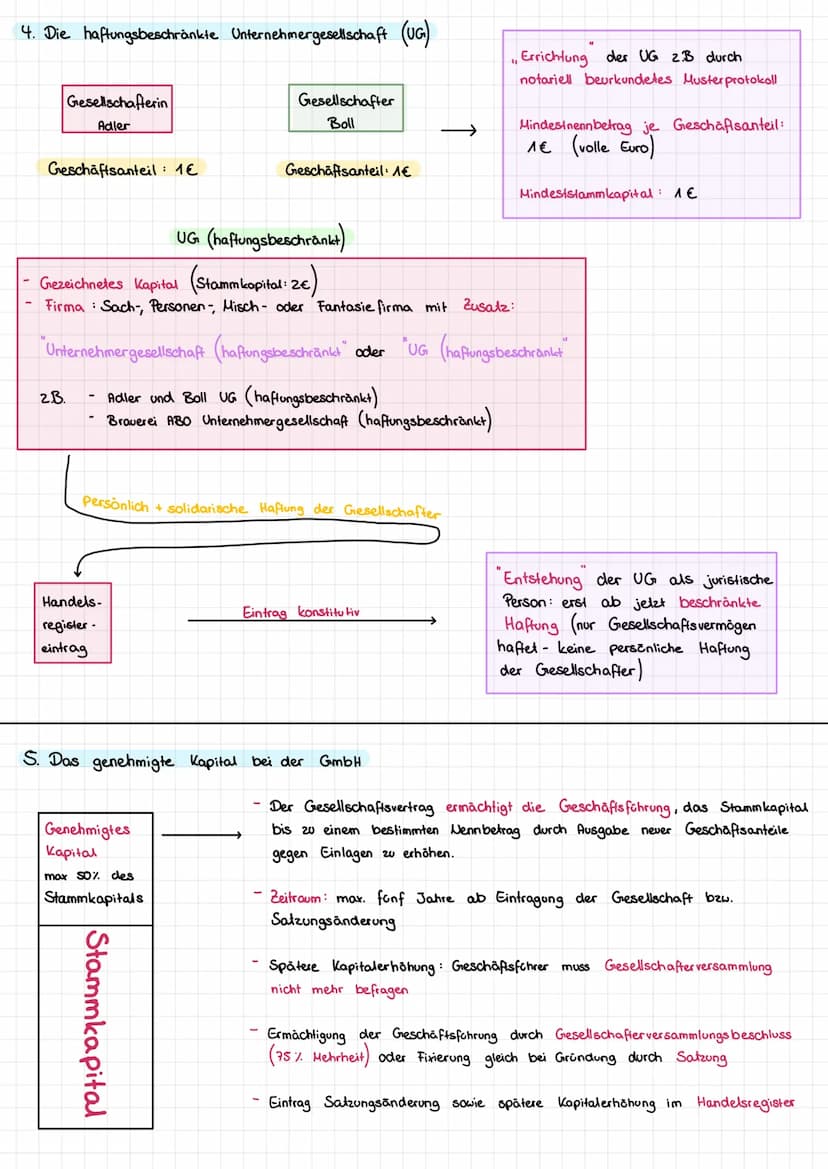 4. Die haftungsbeschränkte Unternehmergesellschaft (UG)
Gesellschafterin
Adler
Gesellschafter
Boll
Geschäftsanteil : 1€
Geschäftsanteil: 1€
„Errichtung" der UG z.B durch
notariell beurkundetes Musterprotokoll
Mindestnennbetrag je Geschäftsanteil:
1€ (volle Euro)
Mindeststammkapital : 1€
UG (haftungsbeschränkt)
- Gezeichnetes Kapital (Stammkapital: 2€)
- Firma : Sach-, Personen-, Misch- oder Fantasiefirma mit Zusatz:
"Unternehmergesellschaft (haftungsbeschränkt" oder "UG (haftungsbeschränkt"
z.B. - Adler und Boll UG (haftungsbeschränkt)
- Brauerei ABO Unternehmergesellschaft (haftungsbeschränkt)
Persönlich + solidarische Haftung der Gesellschafter
Handels-
register-
eintrag
Eintrag konstitutiv
"Entstehung" der UG als juristische
Person: erst ab jetzt beschränkte
Haftung (nur Gesellschaftsvermögen
haftet - keine persönliche Haftung
der Gesellschafter)
5. Das genehmigte Kapital bei der GmbH
Genehmigtes
Kapital
max 50% des
Stammkapitals
Stammkapital
- Der Gesellschaftsvertrag ermächtigt die Geschäftsführung, das Stammkapital
bis zu einem bestimmten Nennbetrag durch Ausgabe neuer Geschäftsanteile
gegen Einlagen zu erhöhen.
- Zeitraum: max. fünf Jahre ab Eintragung der Gesellschaft bzw.
Satzungsänderung
- Spätere Kapitalerhöhung: Geschäftsführer muss Gesellschafterversammlung
nicht mehr befragen
- Ermächtigung der Geschäftsführung durch Gesellschafterversammlungsbeschluss
(75% Mehrheit) oder Fixierung gleich bei Gründung durch Satzung
- Eintrag Satzungsänderung sowie spätere Kapitalerhöhung im Handelsregister